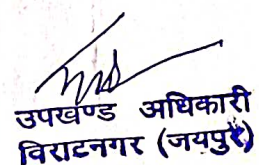 उपखण्ड अधिकारी
विराटनगर (जयपुर)